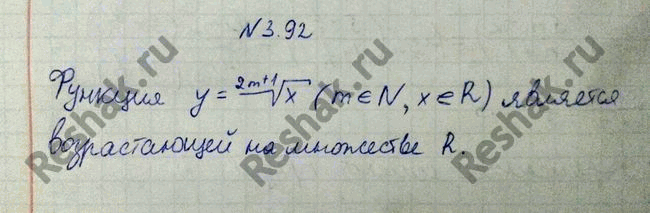 N 3.92
Функция y = \sqrt[2m+1]{x} (m ∈ N, x ∈ R) является
возрастающей на множестве R.
Reshak.ru
Reshak.ru
Reshak.ru
Reshak.ru
Reshak.ru
Reshak.ru